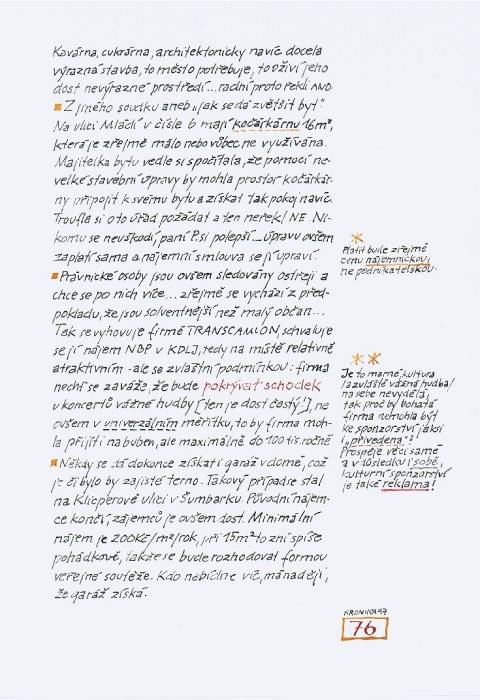 Kavárna, cukrárna, architektonicky navíc docela
výrazná stavba, to město potřebuje, to oživí jeho
dost nevýrazné prostředí... radní proto řekli ANO.
Z jiného soudku aneb „jak se dá zvětšit byt“
Na ulici Mládí v čísle 6 mají kočárkárnu 16m²,
která je zřejmě málo nebo vůbec ne využívána.
Majitelka bytu vedle si spočítala, že pomocí ne-
velké stavební úpravy by mohla prostor kočárkár-
ny připojit k svému bytu a získat tak pokoj navíc.
Troufla si o to úřad požádat a ten neřekl NE. Ni-
komu se neuškodí, paní P. si polepší... úpravu ovšem
zaplatí sama a nájemní smlouva se jí upraví.
Právnické osoby jsou ovšem sledovány ostřeji a
chce se po nich více... zřejmě se vychází z před-
pokladu, že jsou solventnější než malý občan...
Tak se vyhovuje firmě TRANSCAMION, schvaluje
se jí nájem NBP v KDLJ, tedy na místě relativně
atraktivním - ale se zvláštní podmínkou: firma
nechť se zaváže, že bude pokrývat schodek
u koncertů vážné hudby [ten je dost častý!], ne
ovšem v univerzálním měřítku, to by firma moh-
la přijít i na buben, ale maximálně do 100 tis. ročně
Někdy se dá dokonce získat i garáž v domě, což
je či bylo by zajisté terno. Takový případ se stal
na Klicperově ulici v Šumbarku. Původní nájem-
ce končí, zájemců je ovšem dost. Minimální
nájem je 200Kč/m²/rok, při 15m² to zní spíše
pohádkově, takže se bude rozhodovat formou
veřejné soutěže. Kdo nabídne víc, má naději,
že garáž získá.
*
Platit bude zřejmě
cenu nájemnickou,
ne podnikatelskou.
**
Je to marné, kultura
/a zvláště vážná hudba/
na sebe nevydělá,
tak proč by bohatá
firma nemohla být
ke sponzorství jaksi
„přivedena“?
Prospěje věci samé
a v důsledku i sobě,
kulturní sponzorství
je také reklama!
KRONIKA 97
76